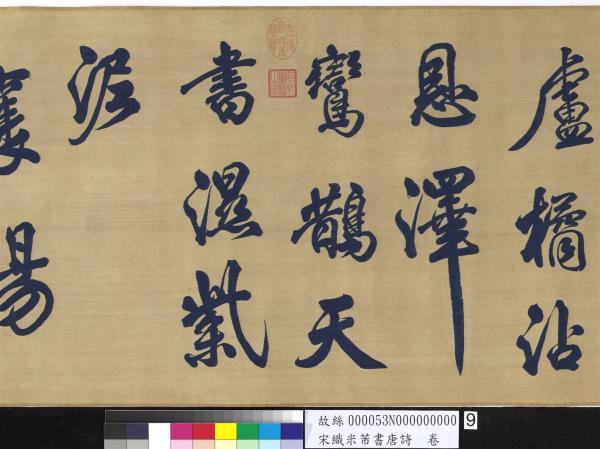 盧橘沾
恩澤
鸞鵲天
書濕紫
泥
襄陽
故絲 000053N000000000 9
宋織米芾書唐詩 卷